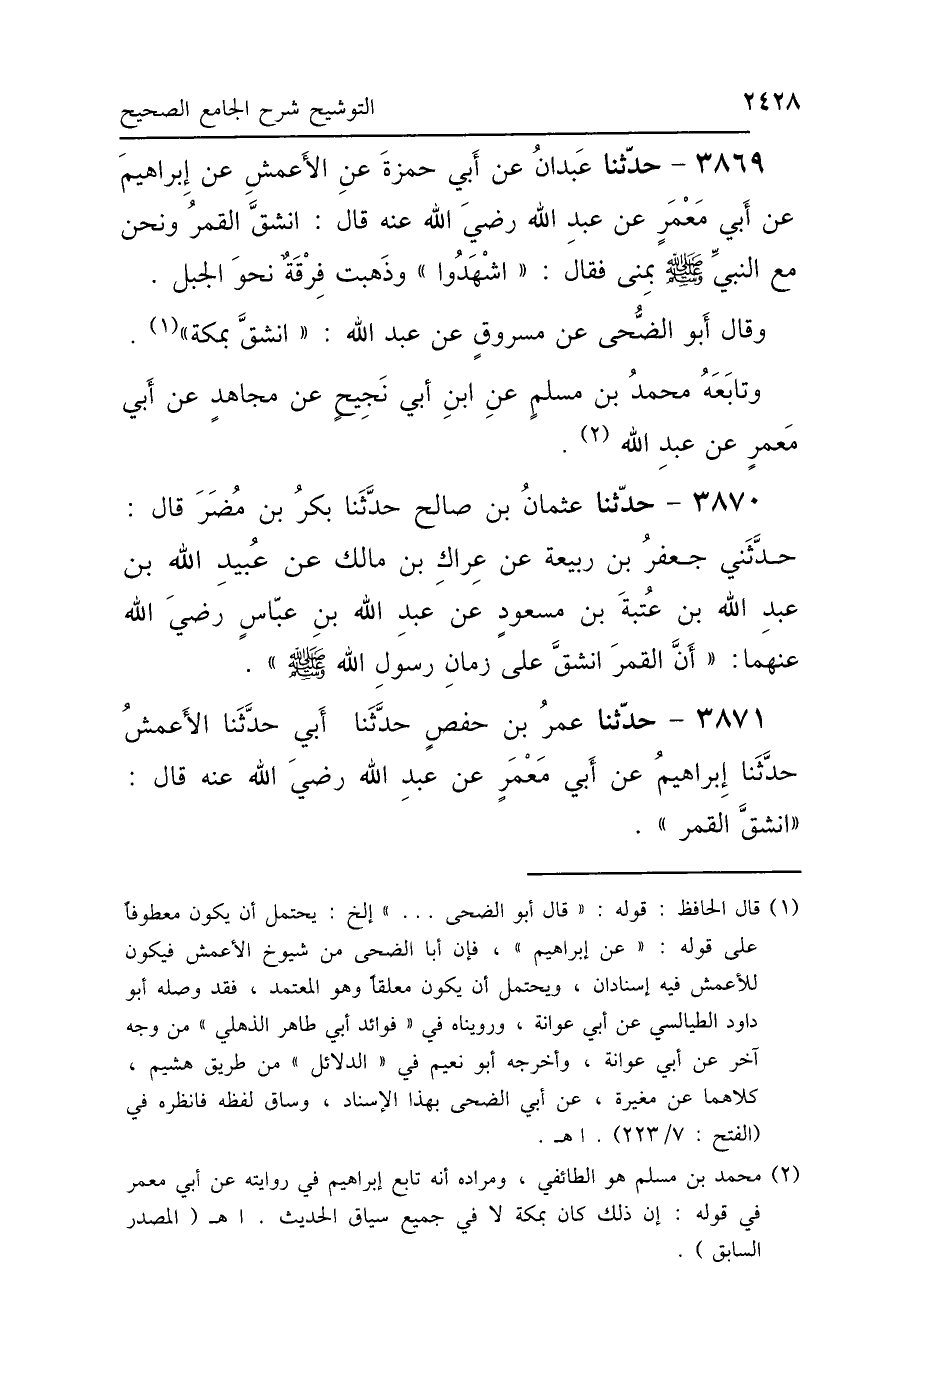 ٢٤٢٨
التوشيح شرح الجامع الصحيح
٣٨٦٩ – حدّثنا عَبدانُ عن أَبي حمزةَ عنِ الأَعمشِ عن إِبراهيمَ
عن أَبي مَعْمَرٍ عن عبدِ الله رضيَ الله عنه قال : انشقَّ القمرُ ونحن
مع النبيِّ ﷺ بِمنى فقال : « اشْهَدُوا » وذَهبت فِرْقَةٌ نحوَ الجبل .
وقال أَبو الضُّحى عن مسروقٍ عن عبد الله : « انشقَّ بمكة»(١) .
وتابَعَهُ محمدُ بن مسلمٍ عنِ ابنِ أبي نَجِيحٍ عن مجاهدٍ عن أَبي
مَعمرٍ عن عبدِ الله (٢) .
٣٨٧٠ – حدّثنا عثمانُ بن صالح حدَّثَنا بكرُ بن مُضَرَ قال :
حـدَّثَني جـعفرُ بن ربيعة عن عِراكِ بن مالك عـن عُبيدِ الله بن
عبدِ الله بن عُتبةَ بن مسعودٍ عن عبدِ الله بنِ عبّاسٍ رضيَ الله
عنهما: « أَنَّ القمرَ انشقَّ على زمانِ رسولِ الله ﷺ » .
٣٨٧١ – حدّثنا عمرُ بن حفصٍ حدَّثَنا أَبي حدَّثَنا الأَعمشُ
حدَّثَنا إِبراهيمُ عن أَبي مَعْمَرٍ عن عبدِ الله رضيَ الله عنه قال :
«انشقَّ القمر » .
(١) قال الحافظ : قوله : « قال أبو الضحى ... » إلخ : يحتمل أن يكون معطوفاً
على قوله : « عن إبراهيم » ، فإن أبا الضحى من شيوخ الأعمش فيكون
للأعمش فيه إسنادان ، ويحتمل أن يكون معلقاً وهو المعتمد ، فقد وصله أبو
داود الطيالسي عن أبي عوانة ، ورويناه في « فوائد أبي طاهر الذهلي » من وجه
آخر عن أبي عوانة ، وأخرجه أبو نعيم في « الدلائل » من طريق هشيم ،
كلاهما عن مغيرة ، عن أبي الضحى بهذا الإسناد ، وساق لفظه فانظره في
(الفتح : ٢٢٣/٧) . ا هـ .
(٢) محمد بن مسلم هو الطائفي ، ومراده أنه تابع إبراهيم في روايته عن أبي معمر
في قوله : إن ذلك كان بمكة لا في جميع سياق الحديث . ا هـ ( المصدر
السابق ) .